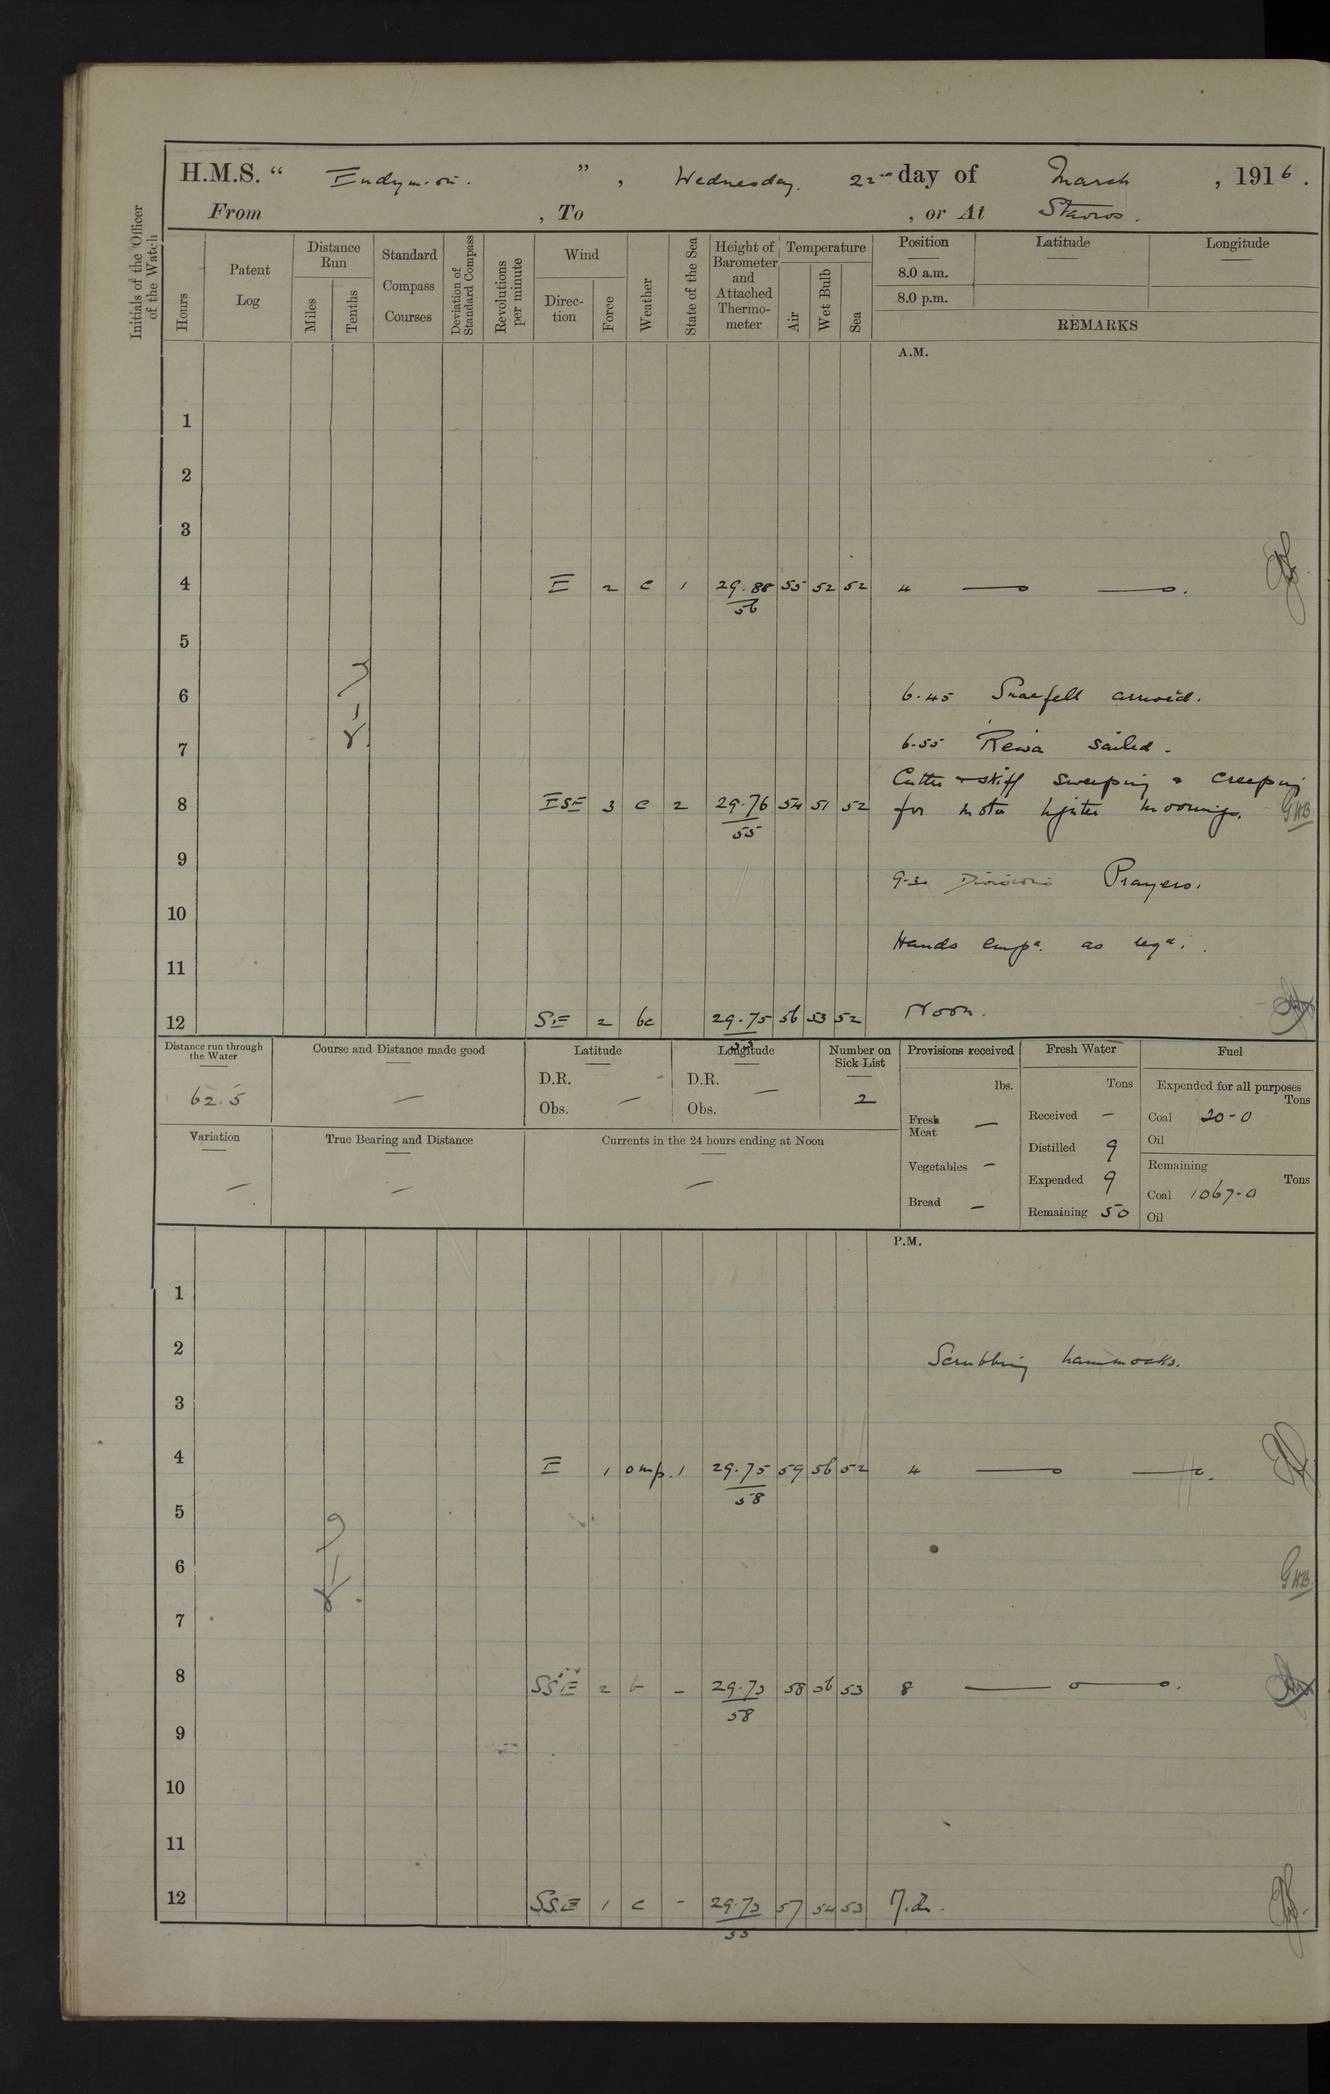 H.M.S. “ Endymion. ” , Wednesday. 22nd day of March , 1916 .
From , To , or At Stavros .
Initials of the Officer of the Watch
Hours
Patent Log
Distance Run
Miles
Tenths
Standard Compass Courses
Deviation of Standard Compass
Revolutions per minute
Wind
Direc-tion
Force
Weather
State of the Sea
Height of Barometer and Attached Thermo-meter
Temperature
Air
Wet Bulb
Sea
Position
Latitude
Longitude
8.0 a.m.
8.0 p.m.
REMARKS
A.M.
1
2
3
4 E 2 c 1 29.88 55 52 52 4
56
5
6 6.45 Snaefell arrived.
7 6.55 Rewa sailed.
Cutter & skiff sweeping & creeping
8 ESE 3 c 2 29.76 54 51 52 for motor lighter moorings. GHB
55
9
9.30 Divisions Prayers.
10
Hands empd. as reqd.
11
12 SE 2 bc 29.75 56 53 52 Noon.
Distance run through the Water
62.5
Course and Distance made good
—
Latitude
D.R.
Obs. —
Longitude
D.R. —
Obs.
Number on Sick List
2
Variation
—
True Bearing and Distance
—
Currents in the 24 hours ending at Noon
—
Provisions received
lbs.
Fresh Meat —
Vegetables —
Bread —
Fresh Water
Tons
Received —
Distilled 9
Expended 9
Remaining 50
Fuel
Expended for all purposes
Tons
Coal 20-0
Oil
Remaining
Tons
Coal 1067-0
Oil
P.M.
1
2 Scrubbing hammocks.
3
4 E 1 omp. 1 29.75 59 56 52 4
58
5
6 GHB
7
8 SSE 2 b - 29.73 58 56 53 8
58
9
10
11
12 SSE 1 c - 29.73 57 54 53